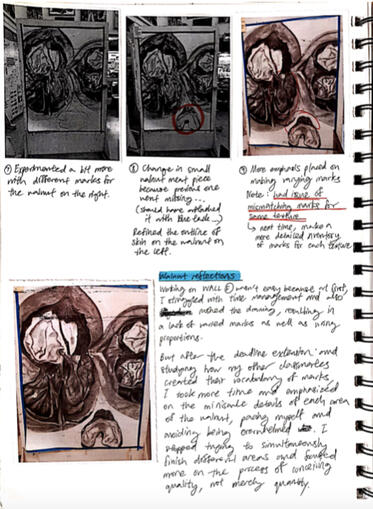 ⑦ Experimented a bit more
with different marks for
the walnut on the right.
⑧ Change in small
walnut meat piece
because previous one
went missing...
(should have attached
it with blu tack...)
Refined the outline of
skin on the walnut on
the left.
⑨ More emphasis placed on
making varying marks
Note: had issue of
mismatching marks for
same texture
↳ next time, make a
more detailed inventory
of marks for each texture
Walnut reflections
Working on WALL E wasn't easy because at first,
I struggled with time management and also
rushed the drawing, resulting in
a lack of varied marks as well as wrong
proportions.
But after the deadline extension and
studying how my other classmates
created their vocabulary of marks,
I took more time and emphasized
on the miniscule details of each area
of the walnut, pacing myself and
avoiding being overwhelmed. I
stopped trying to simultaneously
finish different areas and focused
more on the process of
quality, not merely quantity.